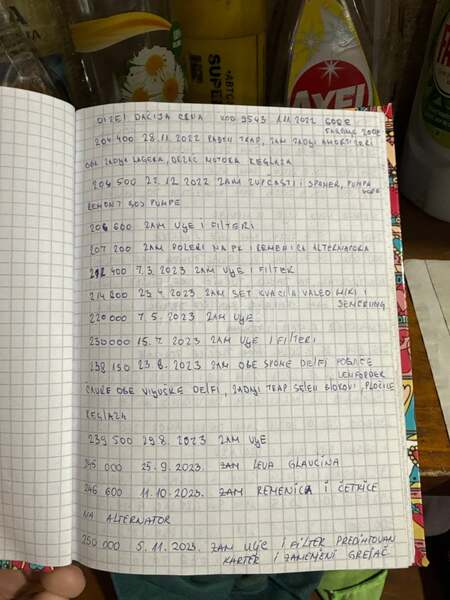 AXEL
DIZEL DACIJA CRNA KOD 9543 1.11.2022
204 400 28.11 2022 TRAP, ZAM ZADNJI AMORTIZERI
OBA ZADNJA LAGERA, DRZAC MOTORA REGLAZA
204 500 27. 12 2022 ZAM ZUPCASTI I SPANER, PUMPA
REMONT BOS PUMPE
206 600 ZAM ULJE I FILTERI
207 200 ZAM ROLERI NA PK I REMENICA ALTERNATORA
400 7.3.2023 ZAM ULJE I FILTER
214 800 23.4 2023 ZAM SET KVACILA VALEO I
SEMERING
220000 7.5.2023 ZAM ULJE
230000 15.7. 2023 ZAM ULJE I FILTERI
238 150 23.8. 2023 ZAM OBE SPONE DELFI
LEMFORDER
OBE VILJUSKE DELFI, ZADNJI TRAP SELEN BLOKOVI, PLOCICE
REGLAZA
239 500 29.8. 2023 ZAM ULJE
245 000 25.9.2023. ZAM LEVA GLAVCINA
246 600 11.10.2023. ZAM REMENICA I ČETKICE
NA ALTERNATOR
250 000 5.11.2023. ZAM ULJE I FILTER PREDIHTOVAN
KARTER I ZAMENJENI GREJAČ